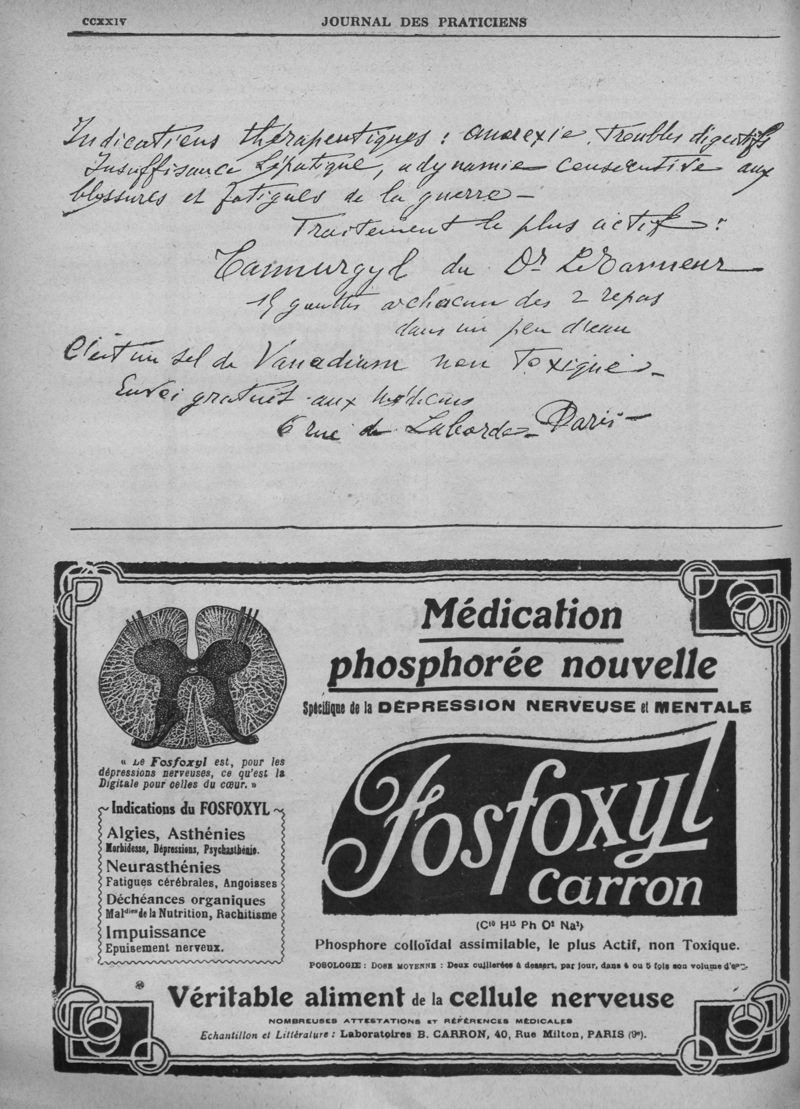 CCXXIV
JOURNAL DES PRATICIENS
Indications thérapeutiques : anorexie, Troubles digestifs
Insuffisance hépatique, adynamie consécutive aux
blessures et fatigues de la guerre —
Traitement le plus actif :
Tannurgyl du Dr Le Tanneur
15 gouttes à chacun des 2 repas
dans un peu d'eau
C'est un sel de Vanadium non Toxique —
Envoi gratuit aux Médecins
6 rue de Laborde — Paris —
Médication
phosphorée nouvelle
Spécifique de la DÉPRESSION NERVEUSE et MENTALE
« Le Fosfoxyl est, pour les
dépressions nerveuses, ce qu'est la
Digitale pour celles du cœur. »
Indications du FOSFOXYL
Algies, Asthénies
Morbidesse, Dépressions, Psychasthénie.
Neurasthénies
Fatigues cérébrales, Angoisses
Déchéances organiques
Maldies de la Nutrition, Rachitisme
Impuissance
Epuisement nerveux.
Fosfoxyl
Carron
(C¹⁰ H¹⁵ Ph O² Na²)
Phosphore colloïdal assimilable, le plus Actif, non Toxique.
POSOLOGIE : DOSE MOYENNE : Deux cuillerées à dessert, par jour, dans 4 ou 5 fois son volume d'eau
Véritable aliment de la cellule nerveuse
NOMBREUSES ATTESTATIONS ET RÉFÉRENCES MÉDICALES
Echantillon et Littérature : Laboratoires B. CARRON, 40, Rue Milton, PARIS (9e).